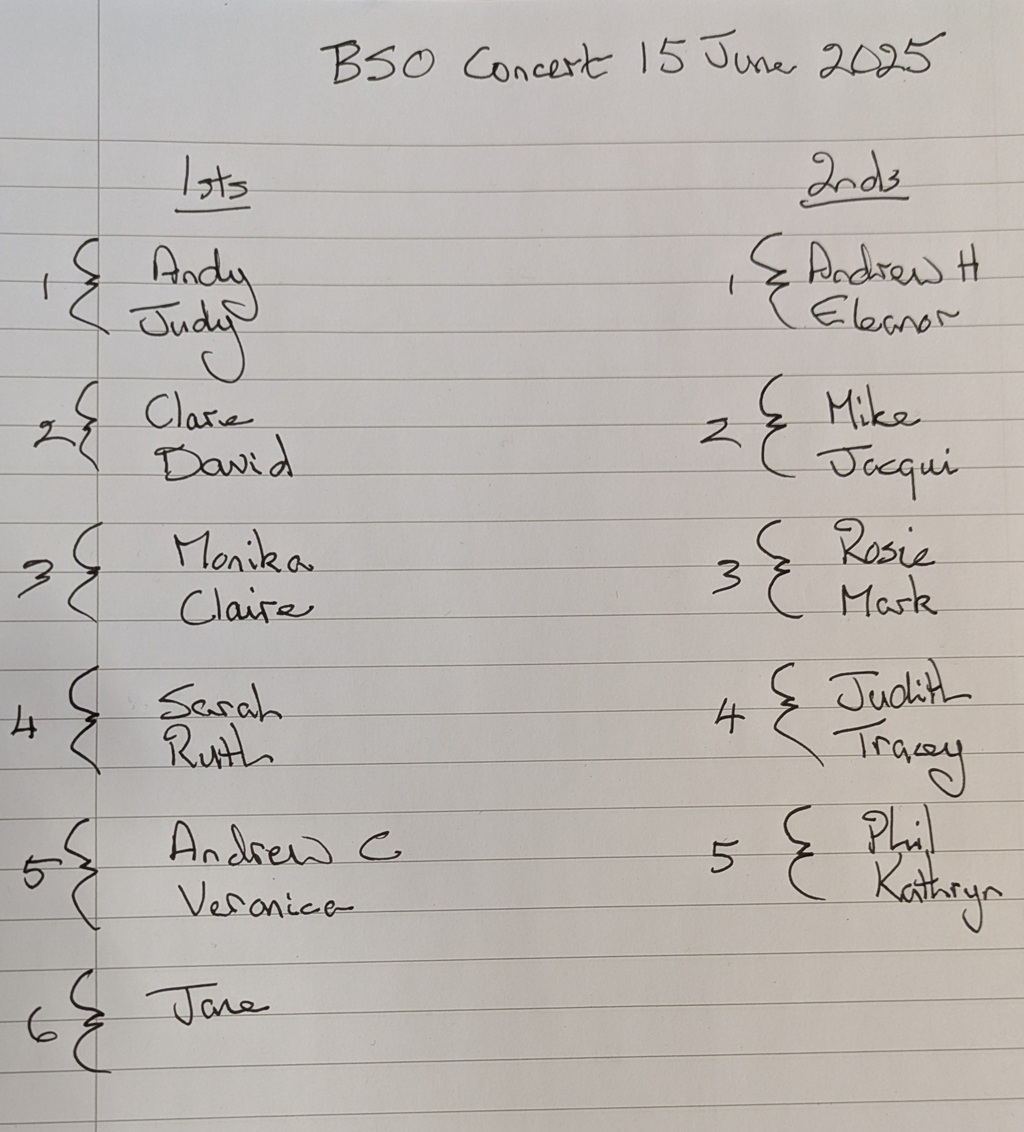 BSO Concert 15 June 2025
1sts
1 { Andy
Judy
2 { Clare
David
3 { Monika
Claire
4 { Sarah
Ruth
5 { Andrew C
Veronica
6 { Jane
2nds
1 { Andrew H
Eleanor
2 { Mike
Jacqui
3 { Rosie
Mark
4 { Judith
Tracey
5 { Phil
Kathryn